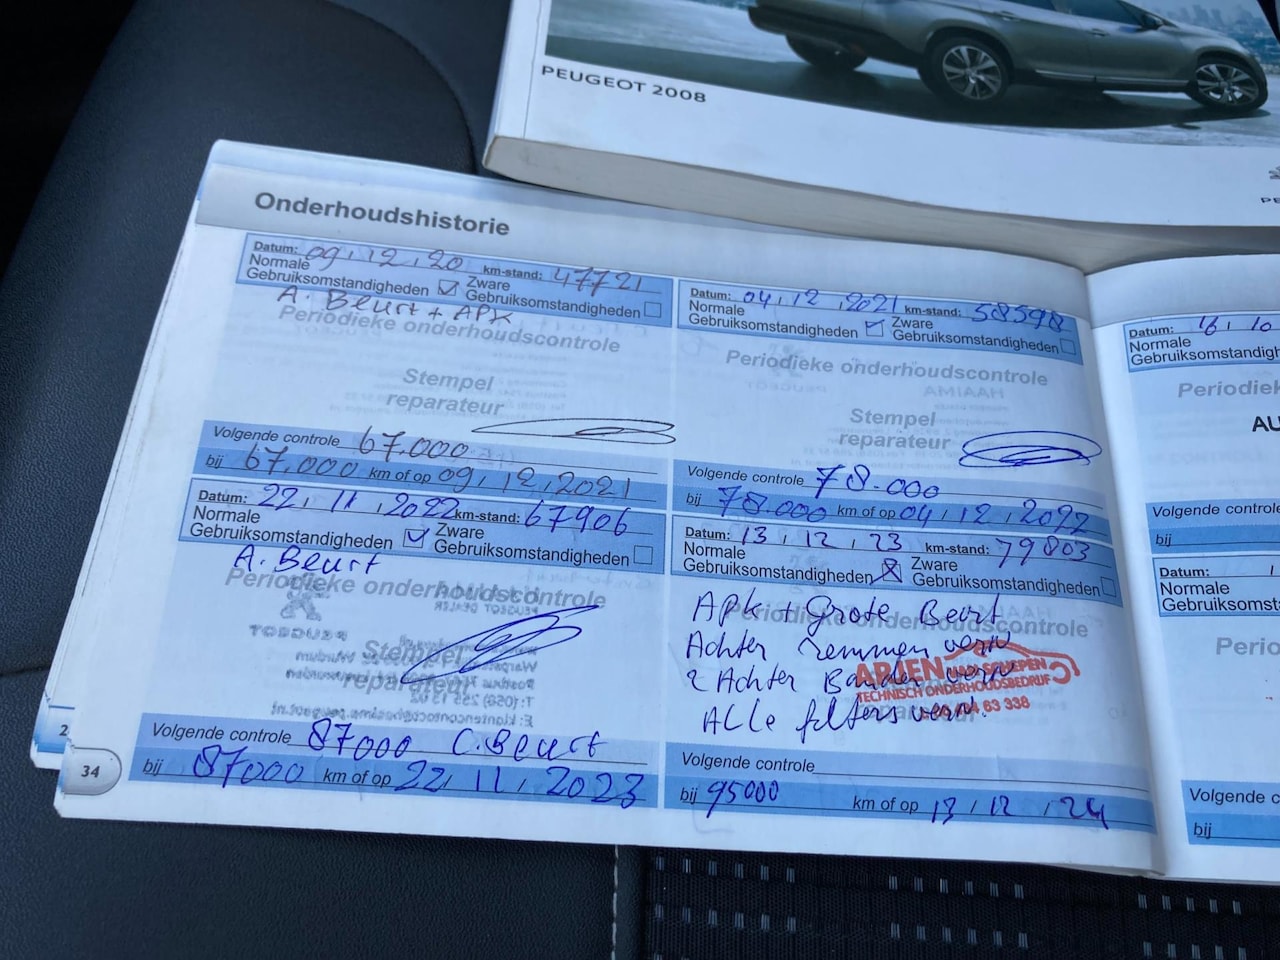 PEUGEOT 2008
Onderhoudshistorie
Datum: 09, 12, 20 km-stand: 47721
Normale Gebruiksomstandigheden Zware Gebruiksomstandigheden
A. Beurt + APK
Periodieke onderhoudscontrole
Stempel
reparateur
Volgende controle 67.000
bij 67.000 km of op 09, 12, 2021
Datum: 04, 12, 2021 km-stand: 58598
Normale Gebruiksomstandigheden Zware Gebruiksomstandigheden
Periodieke onderhoudscontrole
Stempel
reparateur
Volgende controle 78.000
bij 78.000 km of op 04, 12, 2022
Datum: 22, 11, 2022 km-stand: 67906
Normale Gebruiksomstandigheden Zware Gebruiksomstandigheden
A. Beurt
Periodieke onderhoudscontrole
Stempel
reparateur
Volgende controle 87000 C. Beurt
bij 87000 km of op 22, 11, 2023
Datum: 13, 12, 23 km-stand: 79803
Normale Gebruiksomstandigheden Zware Gebruiksomstandigheden
APK + Grote Beurt
Periodieke onderhoudscontrole
Achter remmen verv
2 Achter Banden verv
Alle filters verv.
ARJEN
TECHNISCH ONDERHOUDSBEDRIJF
63 338
Volgende controle
bij 95000 km of op 13, 12, 24
34
2
Datum: 16, 10
Normale
Periodiek
AU
Volgende controle
bij
Datum:
Normale
Periodi
Volgende c
bij